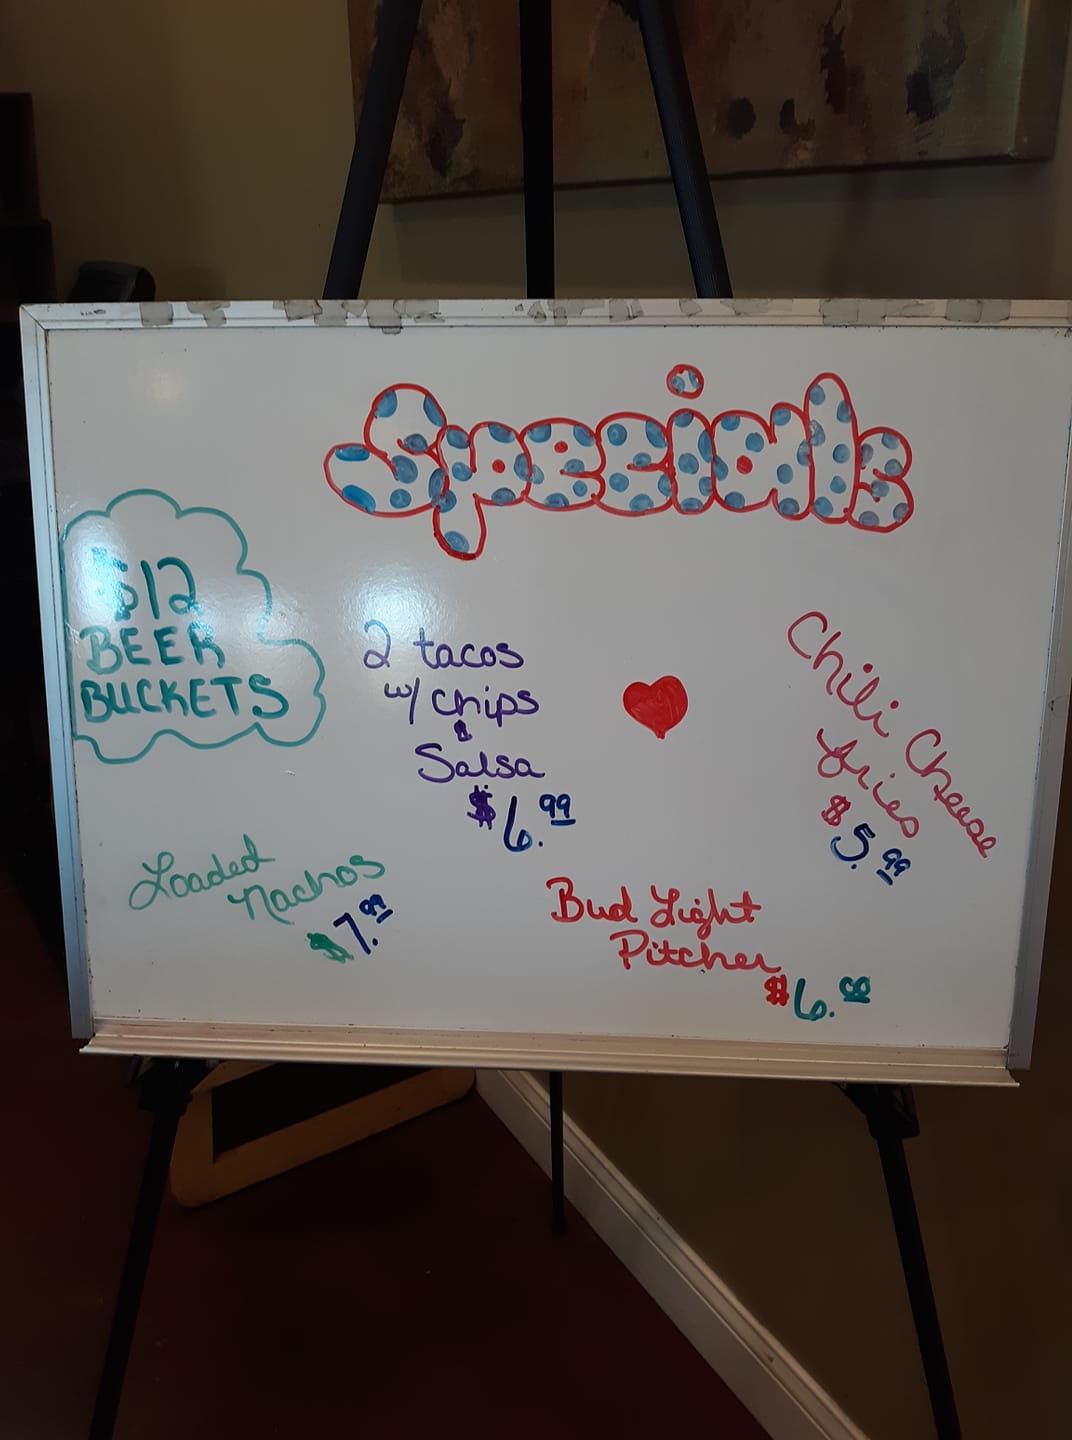 Specials
$12
BEER
BUCKETS
2 tacos
w/ chips
&
Salsa
$6.99
Chili Cheese
fries
$5.99
Loaded
Nachos
$7.99
Bud Light
Pitcher
$6.00